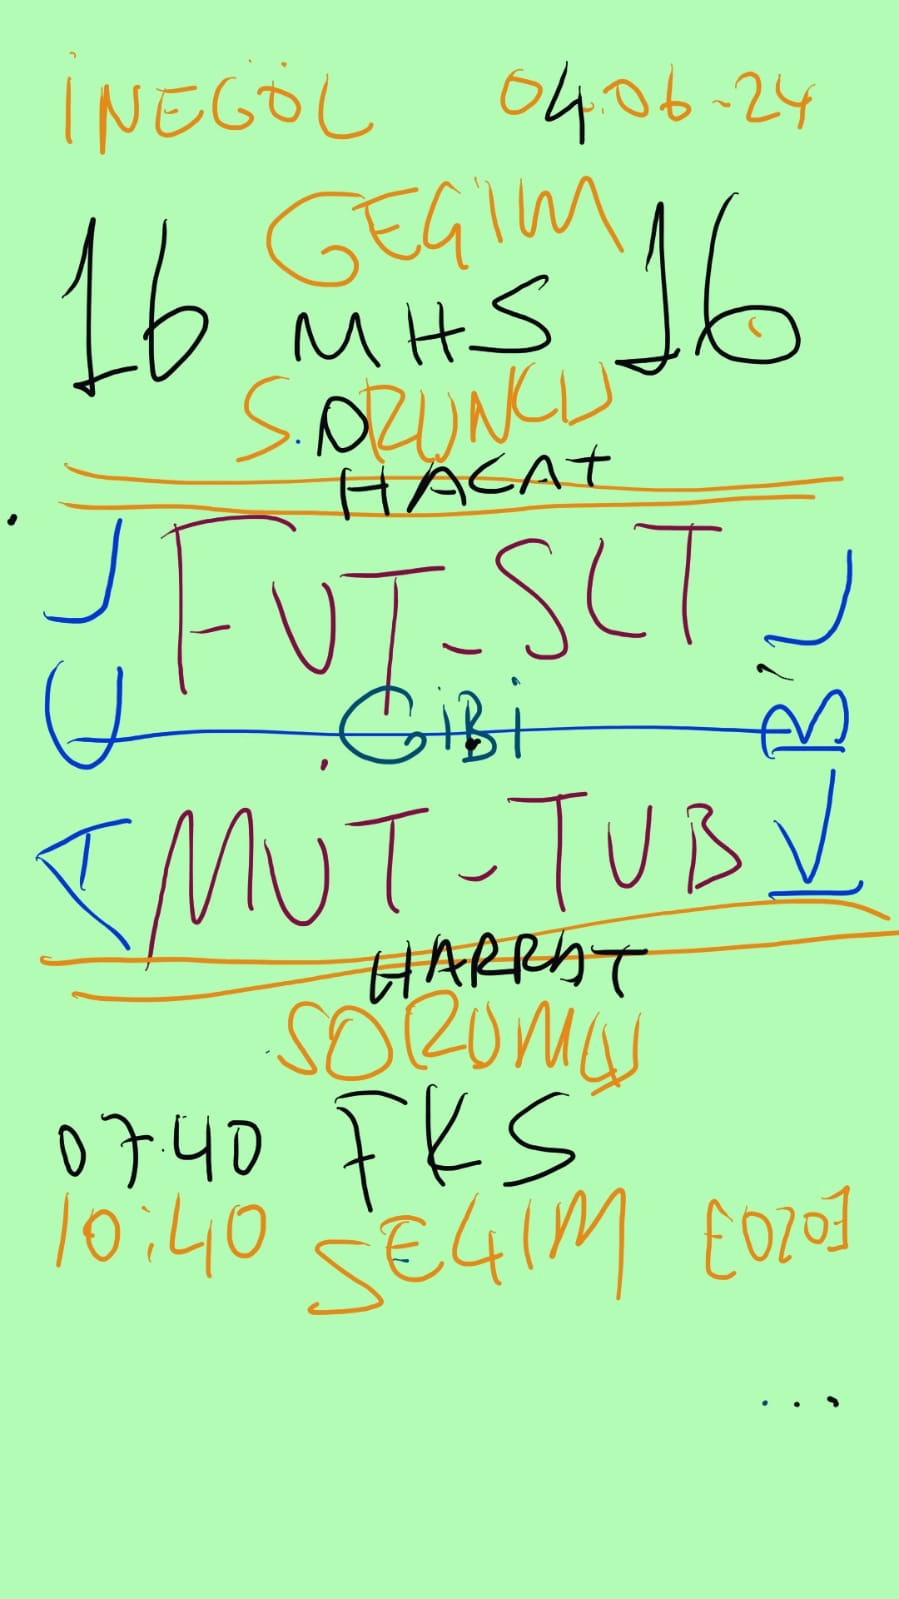 İNEGÖL 04.06-24
GEÇİM
16 MHS 16
S.ORUNCU
HACAT
FUT-SCT
.GİBİ
MUT-TUB
HARRAT
SORUMLU
07.40 FKS
10:40 SEÇIM
...